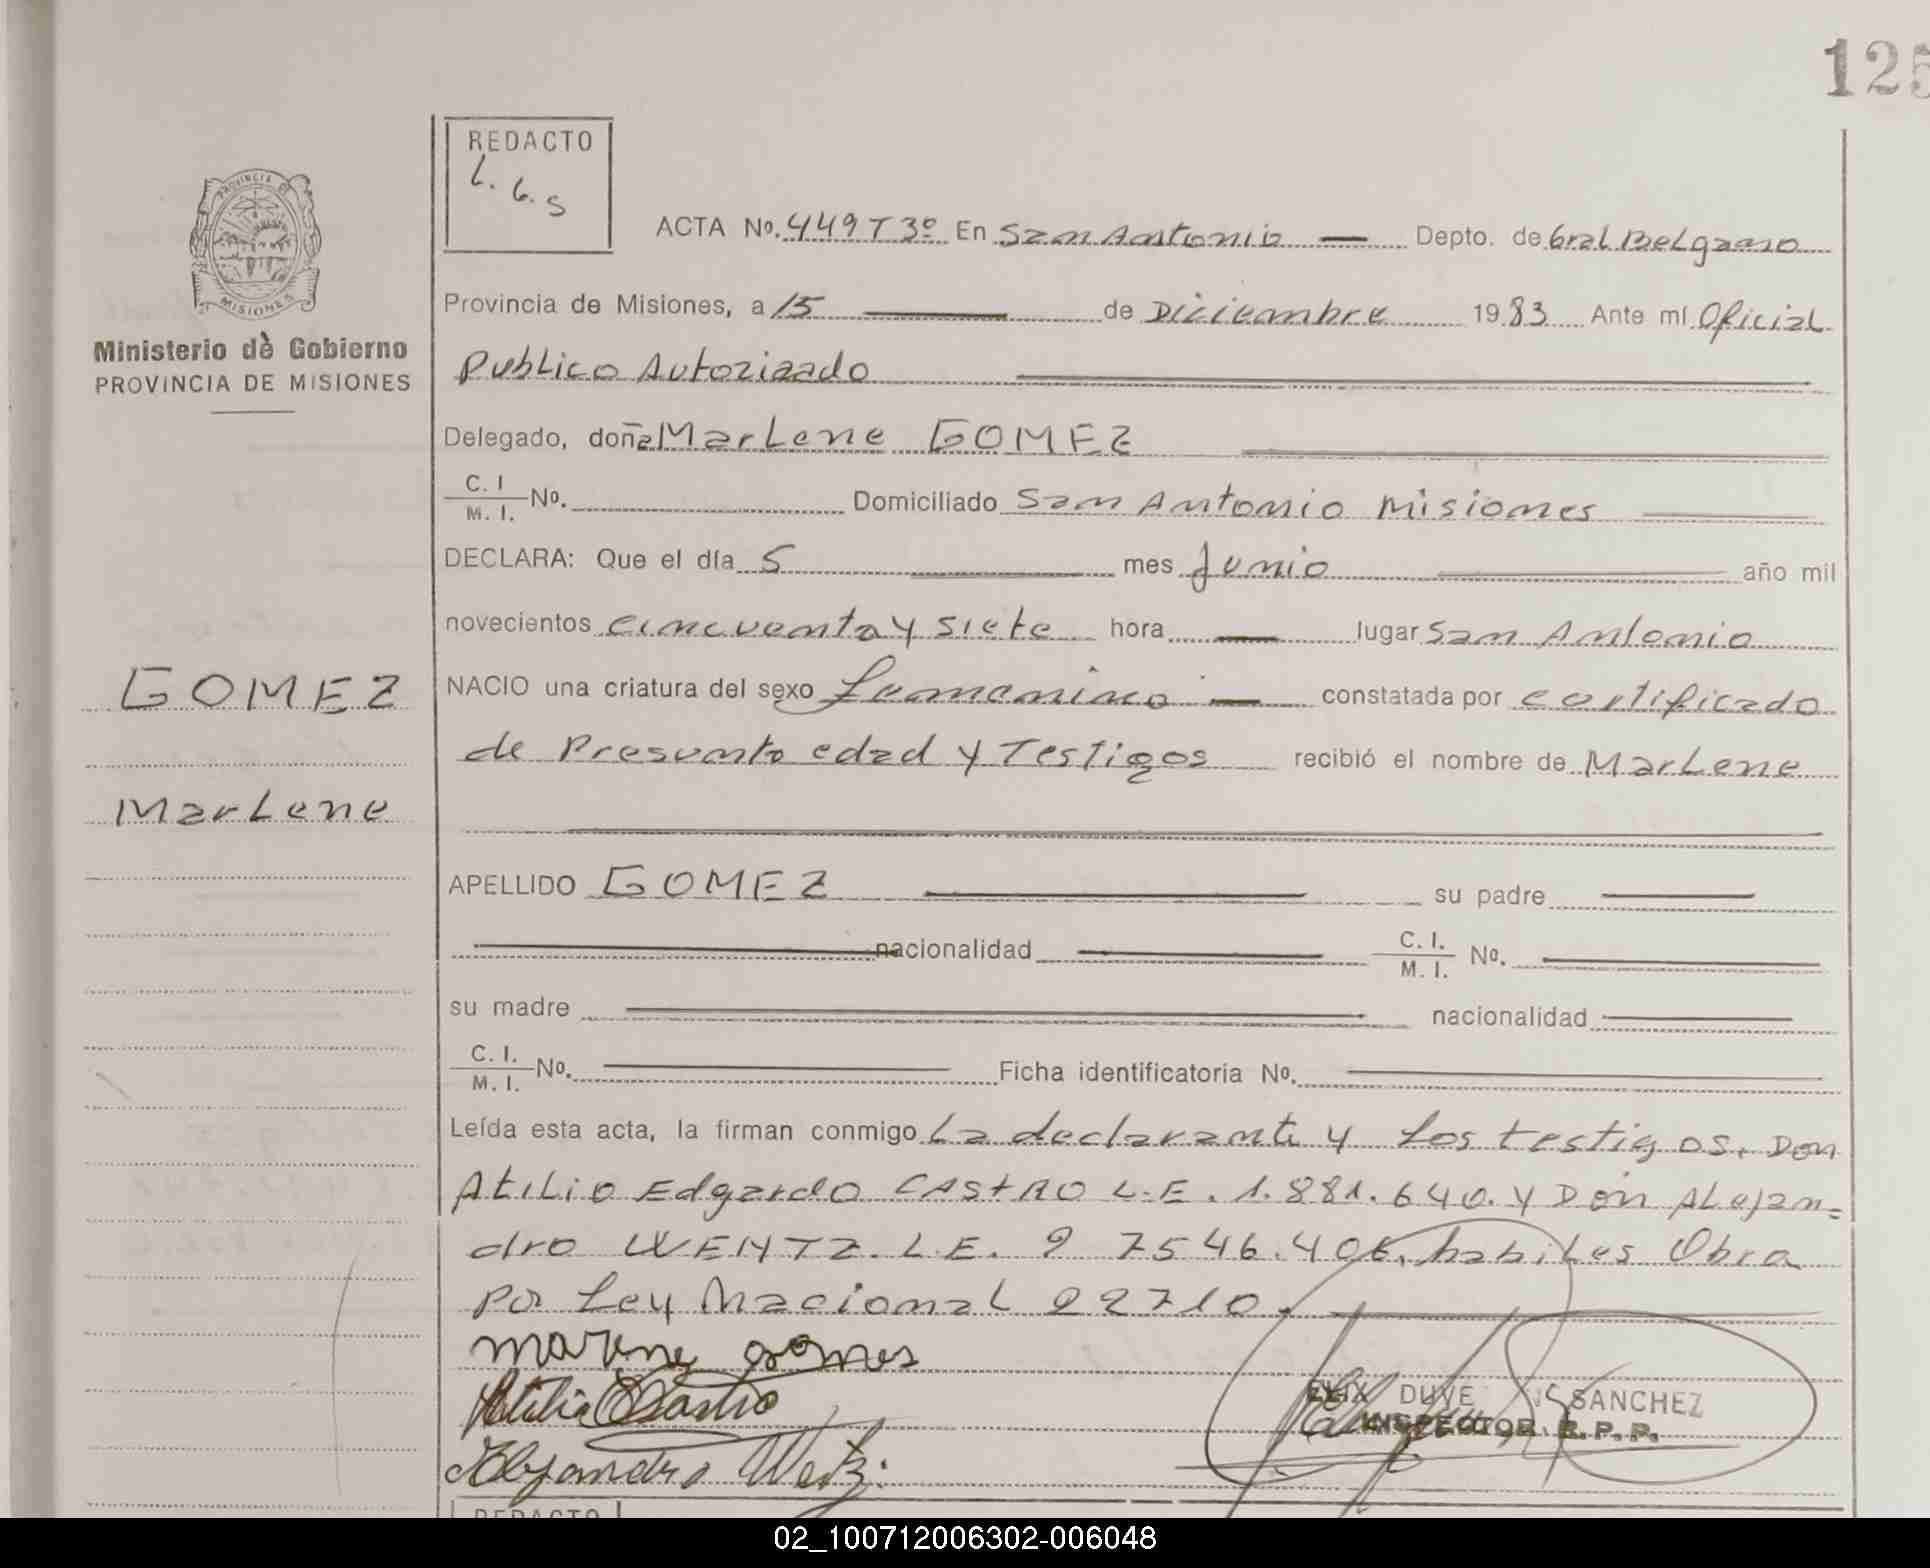 125
REDACTO
L. G. S
ACTA No. 449 T 3º En San Antonio — Depto. de Gral Belgrano
PROVINCIA DE
MISIONES
Ministerio de Gobierno
PROVINCIA DE MISIONES
Provincia de Misiones, a 15 de Diciembre 1983 Ante mí Oficial
Publico Autorizado
Delegado, doña Marlene GOMEZ
C. I
M. I. No. Domiciliado San Antonio Misiones
DECLARA: Que el día 5 mes Junio año mil
novecientos cincuenta y siete hora — lugar San Antonio
GOMEZ
NACIO una criatura del sexo femenino — constatada por certificado
de Presunta edad y Testigos recibió el nombre de Marlene
Marlene
APELLIDO GOMEZ su padre
nacionalidad C. I.
M. I. No.
su madre nacionalidad
C. I.
M. I. No. Ficha identificatoria No.
Leída esta acta, la firman conmigo La declarante y los testigos. Don
Atilio Edgardo CASTRO L.E. 1.881.640. y Don Alejan=
dro WENTZ. L.E. 7546.406. habiles Obra
por Ley Nacional 22710.
marlene gomes
Atilio E Castro
DUVE SANCHEZ
INSPECTOR R.P.P.
Alejandro Wentz.
REDACTO
02_100712006302-006048